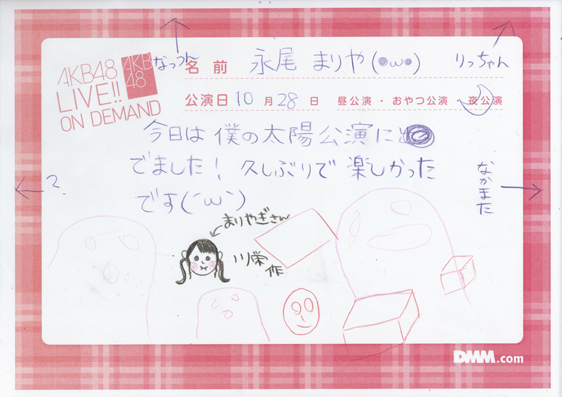 なっつん
りっちゃん
AKB48
LIVE!!
ON DEMAND
AKB
48
名前 永尾 まりや(●ω●)
公演日 10月28日 昼公演・おやつ公演・夜公演
今日は僕の太陽公演に
でました! 久しぶりで楽しかった
です(´ω`)
?
なかまた
まりやぎさん
川栄
作
DMM.com